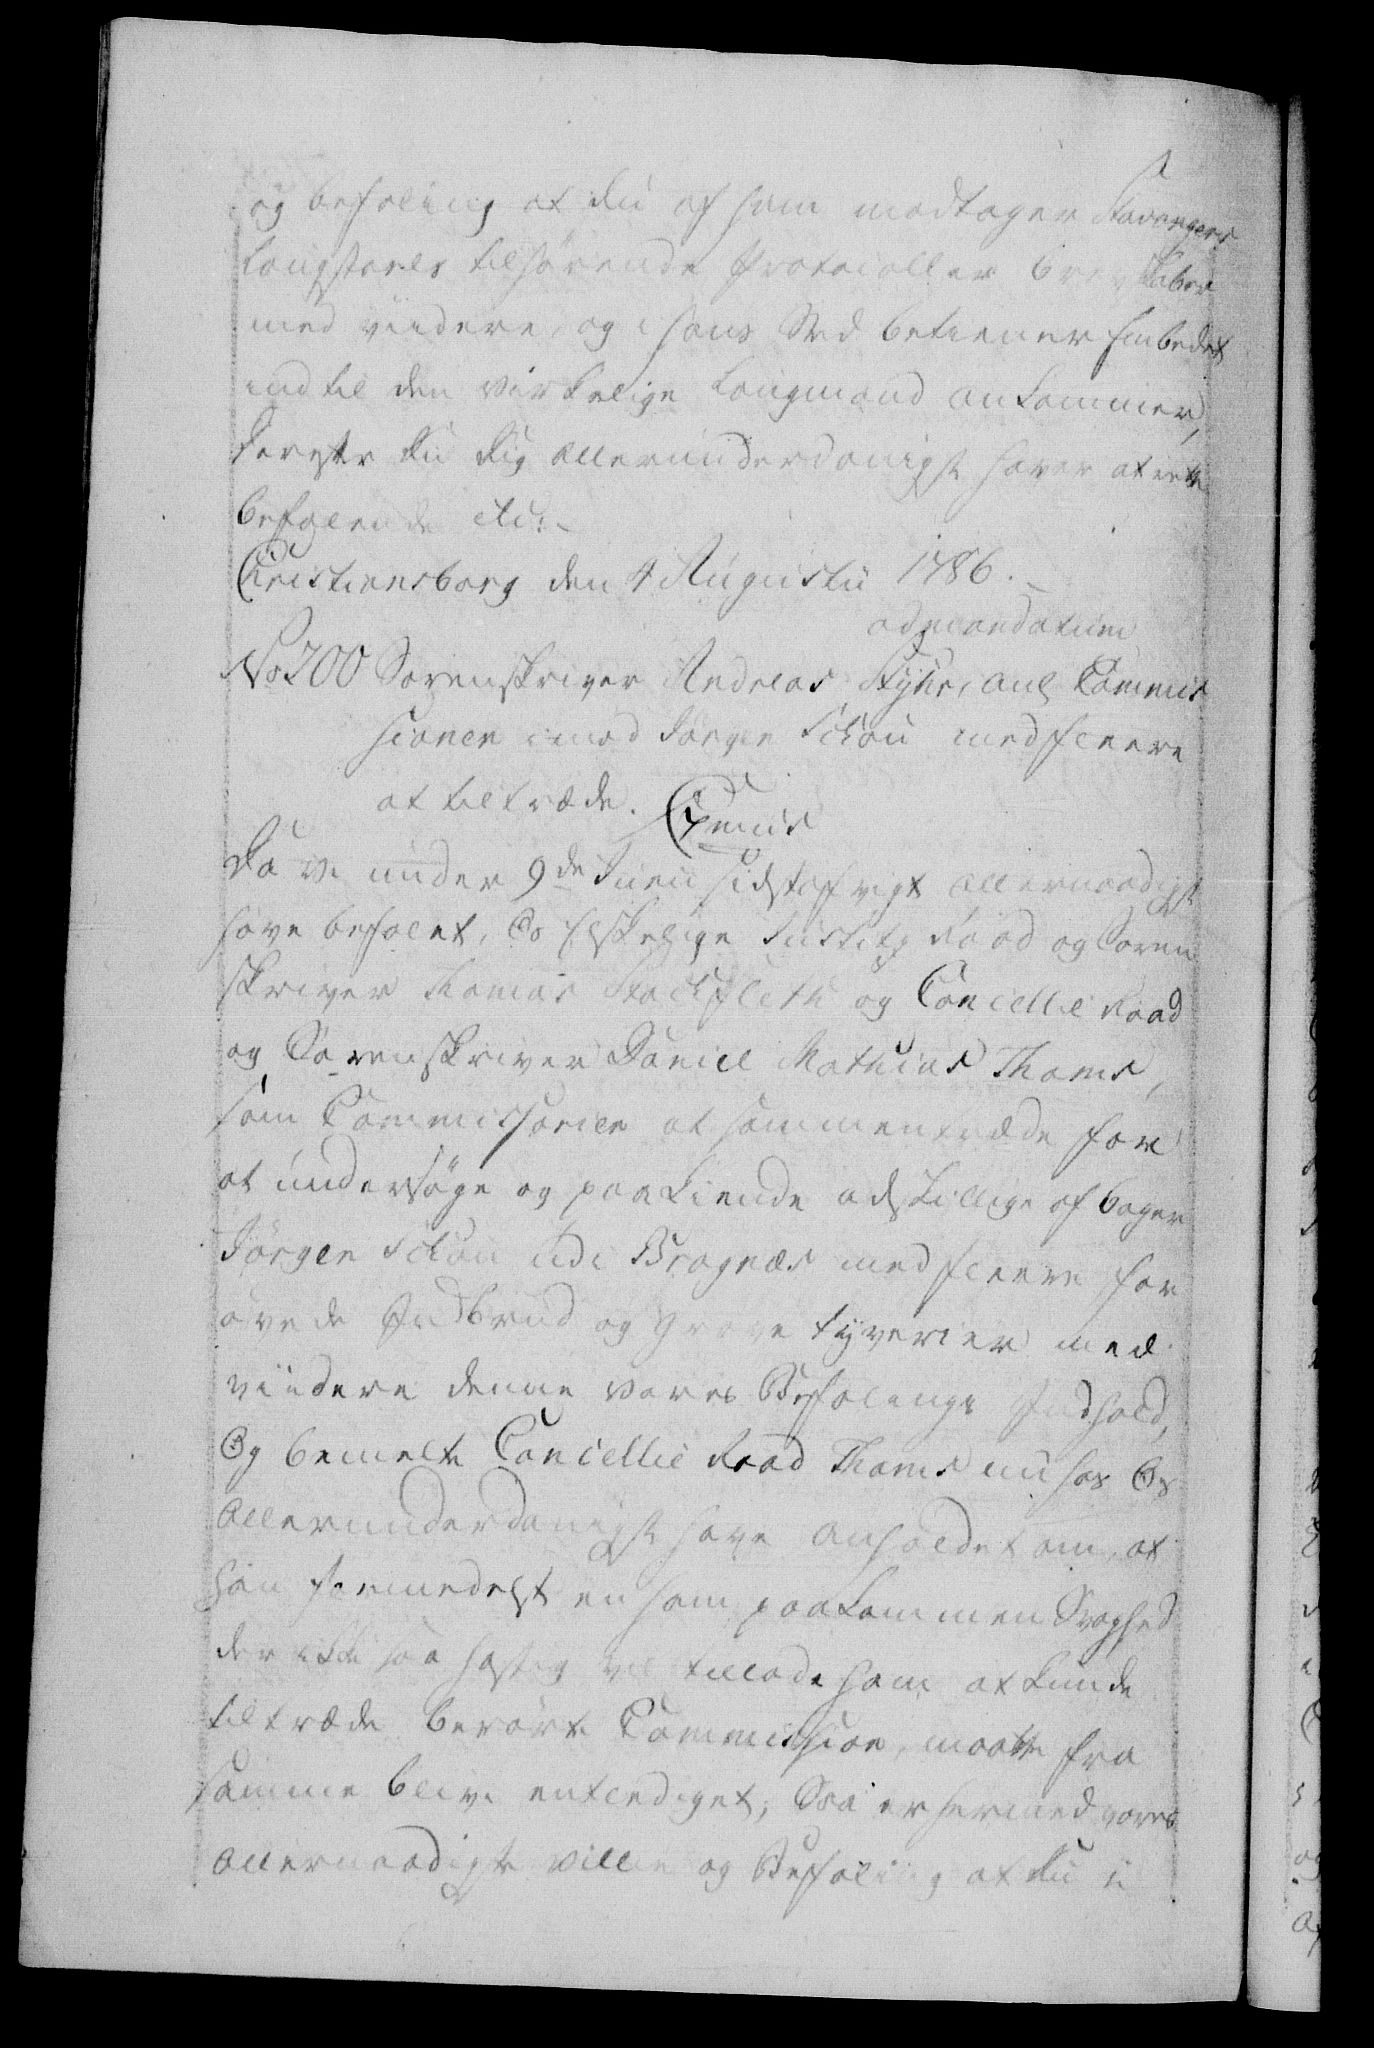 og befaling at du af ham modtager Stavangers
Laugstoels tilhørende Protocoller brevskaber
med viidere, og i hans Sted betiener Embedet
indtil den virkelige Laugmand ankommer,
derefter du dig allerunderdanigst haver at rette
befalende etc:
Christiansborg den 4 Augustii 1786.
ad mandatum
No 200 Sorenskriver Andreas Fyhr, ang Commis
sionen imod Jørgen Schou med fleere
at tiltræde. Genus
Da vi under 9de Junii sidstafvigt allernaadigst
have befalet, Os Elskelige Justitz Raad og Soren
skriver Thomas Stockfleth og Cancellie Raad
og Sorenskriver Daniel Mathias Thams,
som Commissarier at sammentræde for
at undersøge og paakiende adskillige af bager
Jørgen Schou udi Bragnæs med fleere for
øvede Indbrud og grove Tyverier med
viidere denne vores Befalings Indhold,
Og bemelte Cancellie Raad Thams nu hos Os
allerunderdanigst have anholdet om, at
han formedelst en ham paakommen Svaghed
der ikke saa hastig vil tillade ham at kunde
tiltræde berørte Commission, maatte fra
samme blive entlediget; Saa er hermed vores
allernaadigste villie og Befaling at du i